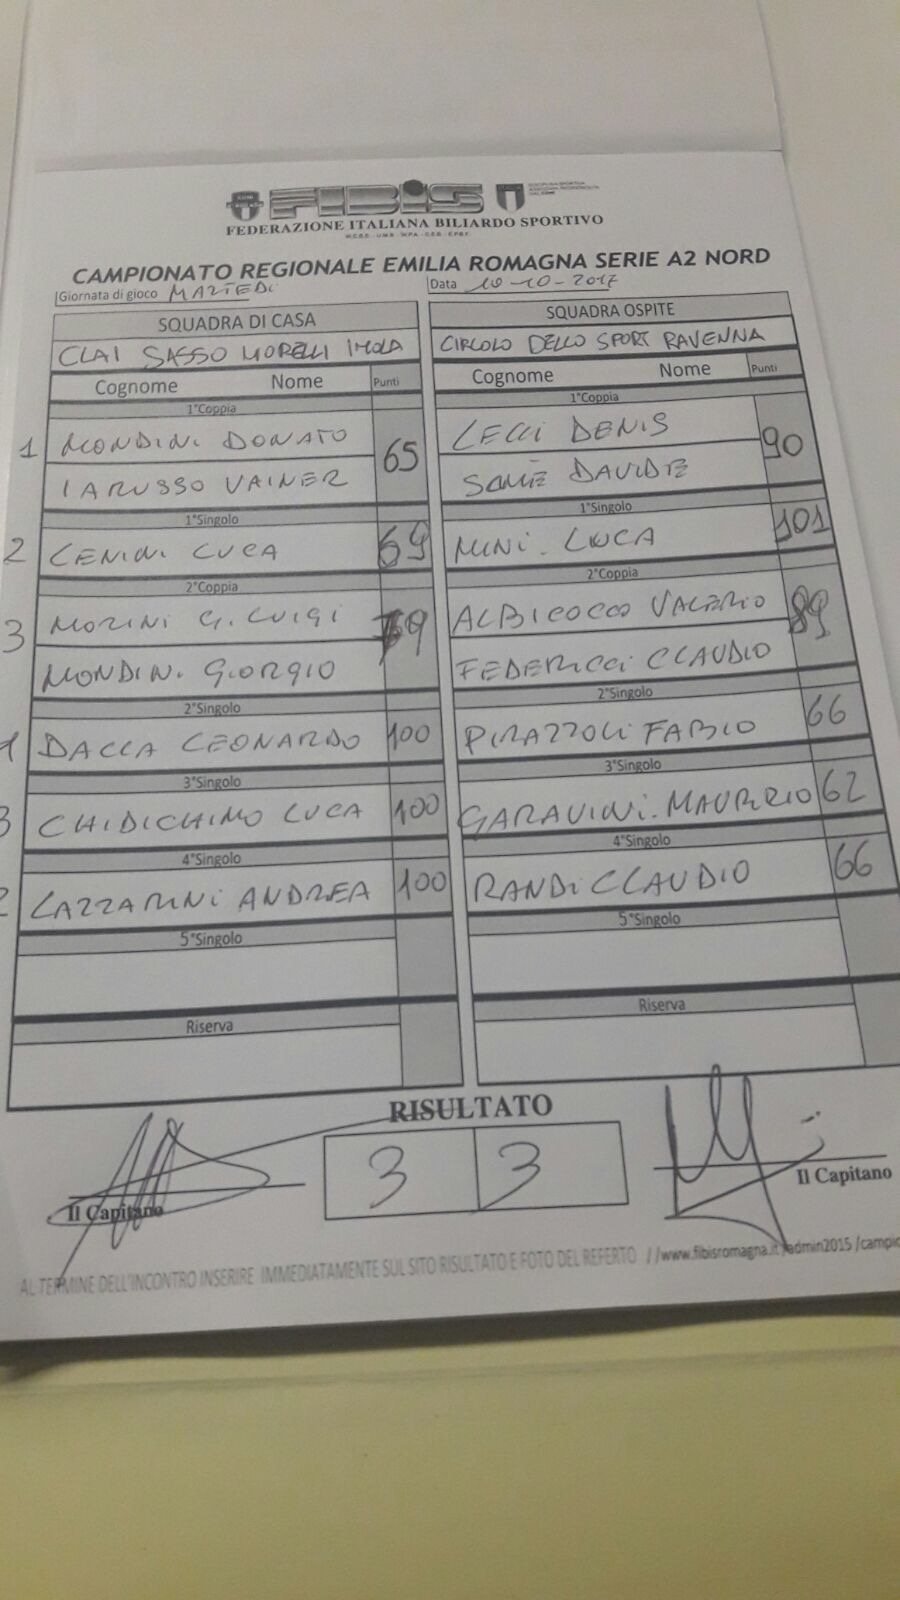 FIBiS
FEDERAZIONE ITALIANA BILIARDO SPORTIVO
CAMPIONATO REGIONALE EMILIA ROMAGNA SERIE A2 NORD
Giornata di gioco MARTEDI Data 10-10-2017
SQUADRA DI CASA SQUADRA OSPITE
CLAI SASSO MORELLI IMOLA CIRCOLO DELLO SPORT RAVENNA
Cognome Nome Punti Cognome Nome Punti
1°Coppia 1°Coppia
1 MONDINI DONATO 65 LECCI DENIS 90
IARUSSO VAINER DAVIDE
1°Singolo 1°Singolo
2 LENINI LUCA 69 MINI LUCA 101
2°Coppia 2°Coppia
3 MORINI G. LUIGI 79 ALBICOCCO VALERIO 89
MONDINI GIORGIO FEDERICCI CLAUDIO
2°Singolo 2°Singolo
1 DACCA LEONARDO 100 PIRAZZOLI FABIO 66
3°Singolo 3°Singolo
3 CHIDICHIMO LUCA 100 GARAVINI MAURIZIO 62
4°Singolo 4°Singolo
2 LAZZARINI ANDREA 100 RANDI CLAUDIO 66
5°Singolo 5°Singolo
Riserva Riserva
RISULTATO
3 3
Il Capitano Il Capitano
AL TERMINE DELL'INCONTRO INSERIRE IMMEDIATAMENTE SUL SITO RISULTATO E FOTO DEL REFERTO //www.fibisromagna.it/admin2015/campio